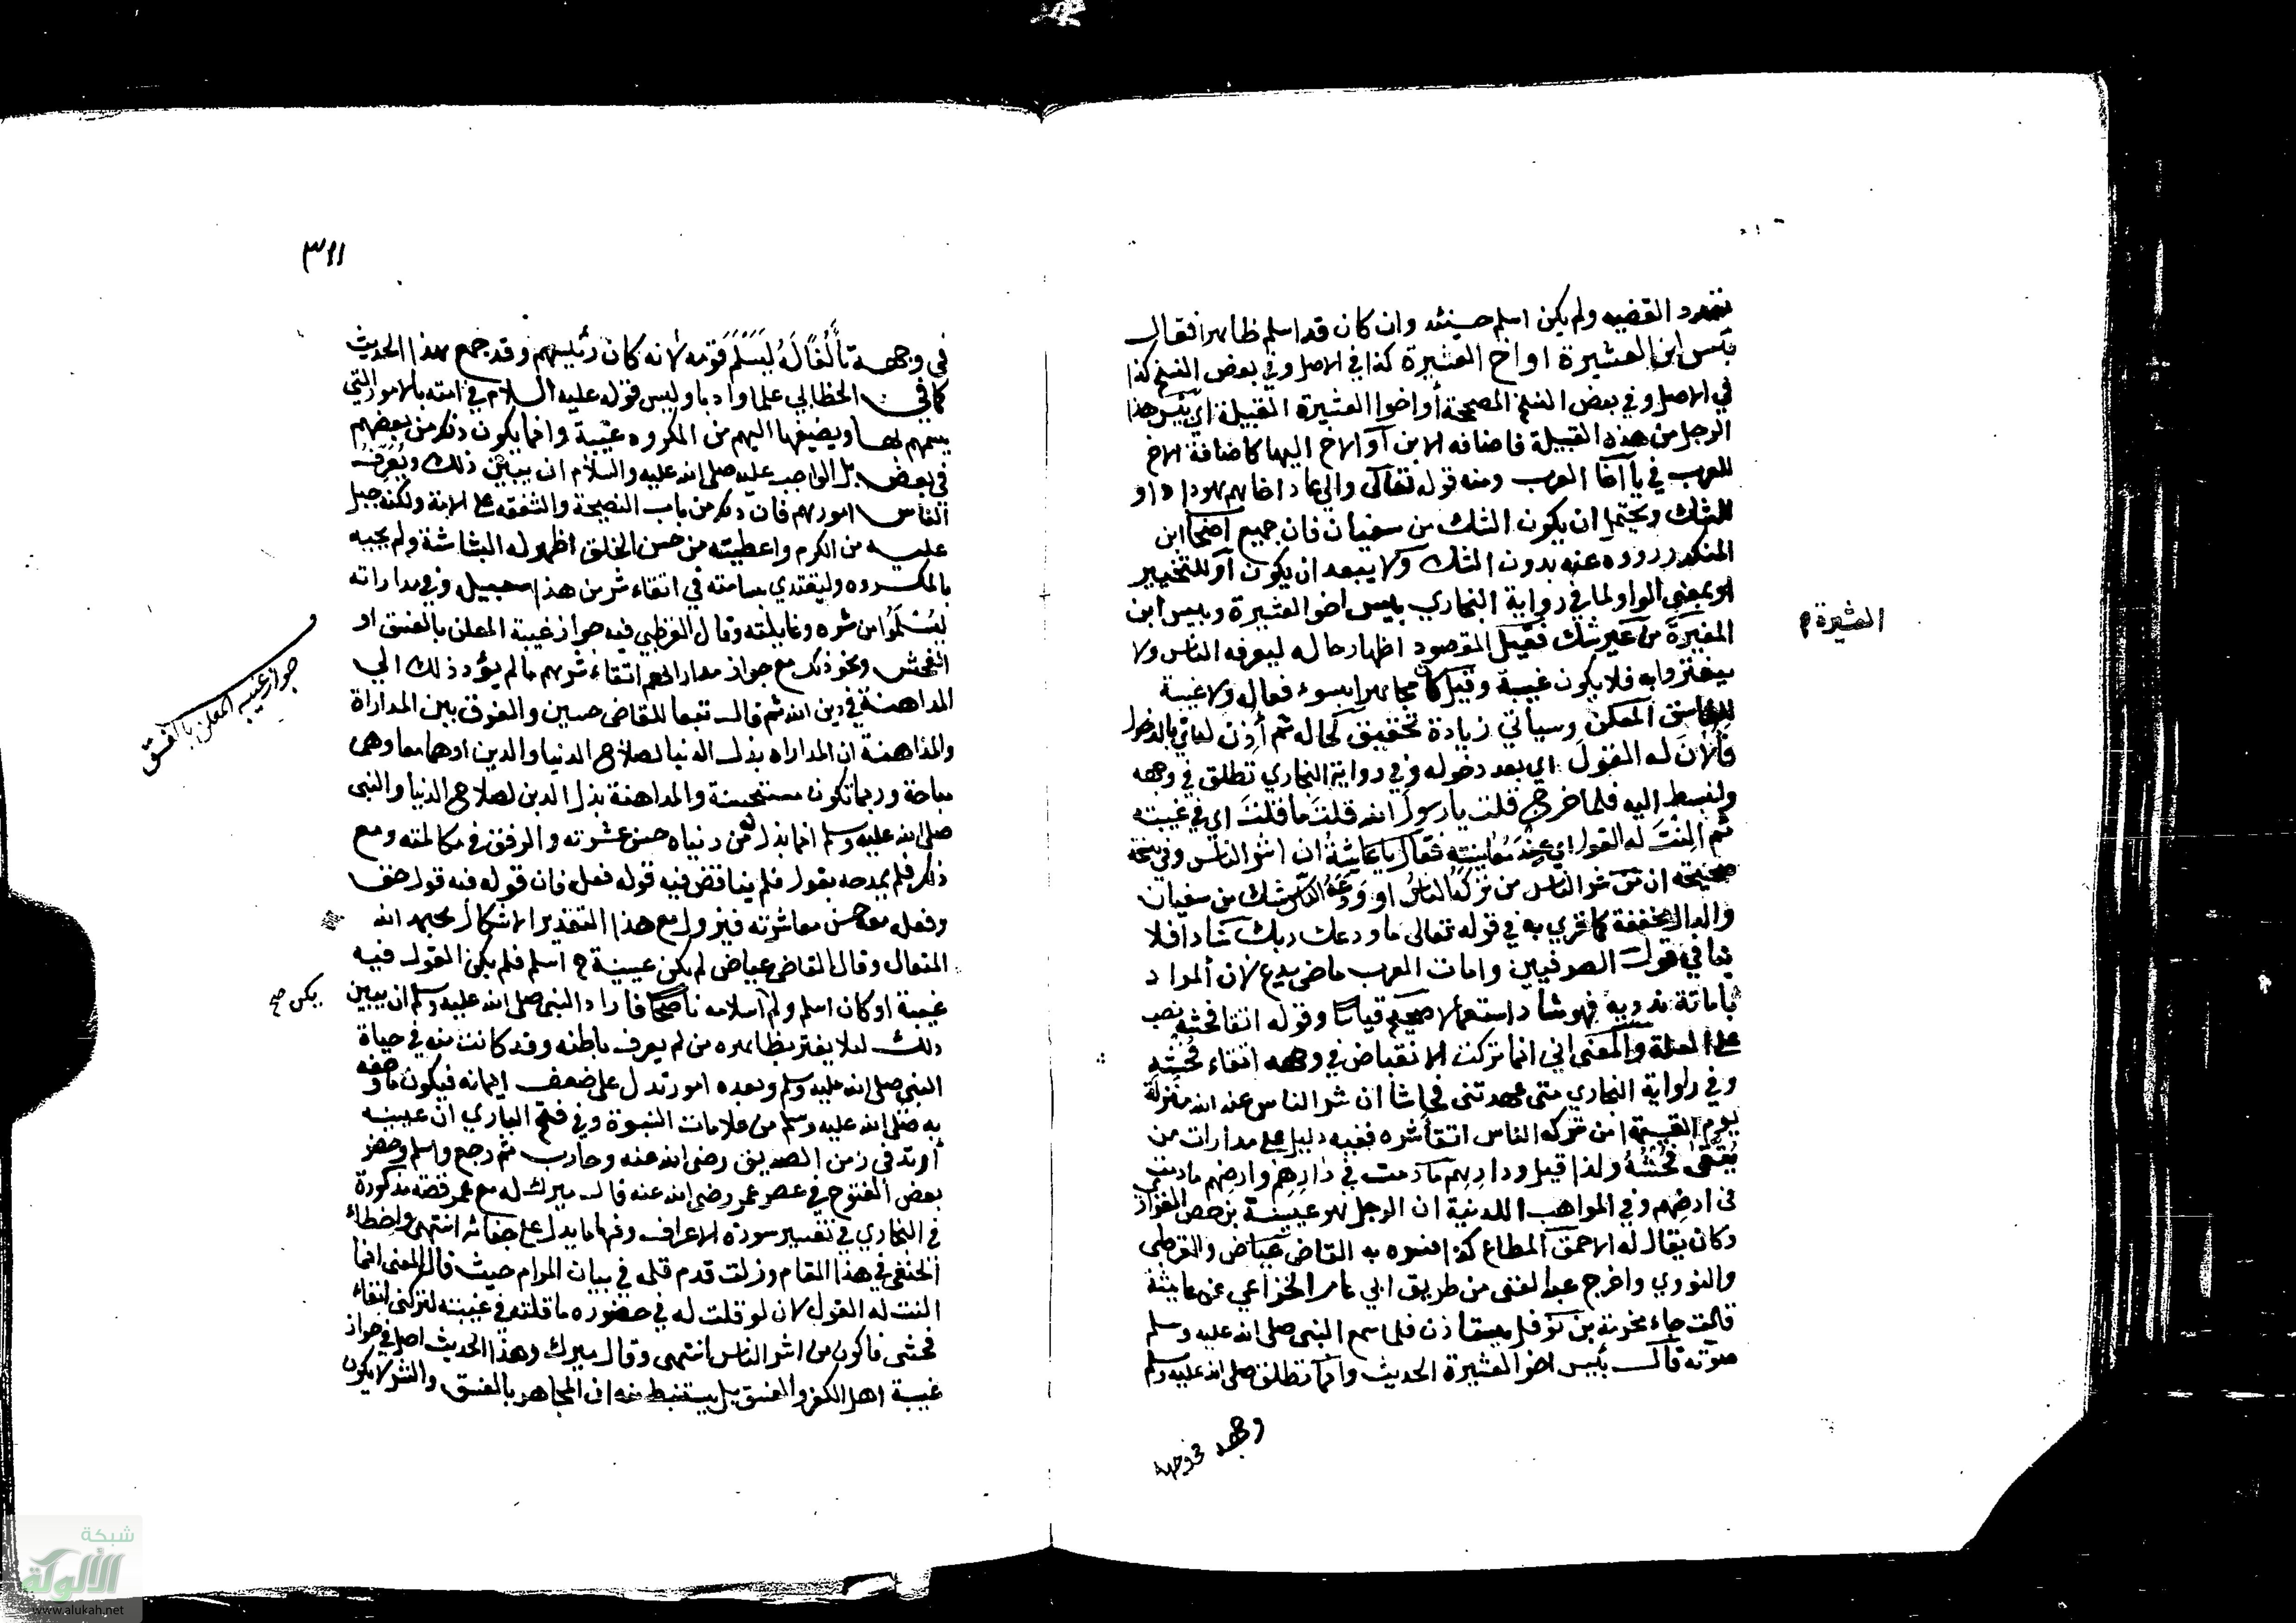 القضيه ولم يكن اسلم حينئذ وان كان قد اسلم ظاهرا فقال
بئس ابن العشيرة او اخ العشيرة كذا في الاصل وفي بعض النسخ كذا
في الاصل وفي بعض النسخ المصححة أو اخوا العشيرة القبيلة اي بئس هذا
الرجل من هذه القبيلة فاضافه الابن او الاخ اليها كاضافة الاخ
للعرب في يا اخا العرب ومنه قوله تعالى والى عاد اخاهم هودا او
للشك ويحتمل ان يكون الشك من سفيان فان جميع اصحاب ابن
المنكدر رووه عنه بدون الشك ولا يبعد ان يكون أو للتخيير
او بمعنى الواو لما في رواية البخاري بئس اخو العشيرة وبيس ابن
العشيرة م
من غير شك فقيل المقصود اظهار حاله ليعرفه الناس ولا
يغتروا به فلا يكون غيبة وقيل كان مجاهرا بسوء فعاله ولا غيبة
للفاسق المعلن وسيأتي زيادة تحقيق لحاله ثم أذن له اي بالدخول
فألان له القول اي بعد دخوله وفي رواية البخاري تطلق في وجهه
وانبسط اليه فلما خرج قلت يا رسول الله قلت ما قلت اي في غيبته
ثم النت له القول اي عند معاينته فقال يا عايشة ان اشر الناس وفي نسخة
صحيحة ان من شر الناس من تركه الناس او ودعه الناس شك من سفيان
والدال مخففة كما قري به في قوله تعالى ما ودعك ربك شاذا فلا
ينافي قول الصرفيين وامات العرب ماضي يدع لان المراد
باماتة ندوره فهو شاذ استعمالا صحيح قياسا وقوله اتقا فحشه نصب
على العلة والمعنى اني انما تركت الانقباض في وجهه اتقاء فحشه
وفي رواية البخاري متى عهدتني فحاشا ان شر الناس عند الله منزلة
يوم القيمة من تركه الناس اتقا شره ففيه دليل على مدارات من
يتقى فحشه ولذا قيل ودارهم ما دمت في دارهم وارضهم ما دمت
في ارضهم وفي المواهب اللدنية ان الرجل هو عيينة بن حصن الفزاري
وكان يقال له الاحمق المطاع كذا فسره به القاضي عياض والقرطبي
والنووي واخرج عبد الغني من طريق ابي عامر الخزاعي عن عايشة
قالت جاء مخرمة بن نوفل يستاذن فلما سمع النبي صلى الله عليه وسلم
صوته قال بئيس اخو العشيرة الحديث وانما تطلق صلى الله عليه وسلم
٣١١
في وجهه تألفا له ليسلم قومه لانه كان رئيسهم وقد جمع هذا الحديث
كما في الخطابي علما وادبا وليس قوله عليه السلام في امته بالامور التي
يسمهم بها ويضيفها اليهم من المكروه غيبة وانما يكون ذلك من بعضهم
في بعض بل الواجب عليه صلى الله عليه والسلام ان يبين ذلك ويعرف
الناس امورهم فان ذلك من باب النصيحة والشفقه على الامة ولكنه جبل
عليه من الكرم واعطيته من حسن الخلق اظهر له البشاشة ولم يجبه
بالمكروه وليقتدي به امته في اتقاء شر من هذا سبيل وفي مداراته
ليسلموا من شره وغايلته وقال القرطبي فيه جواز غيبة المعلن بالفسق او
الفحش ونحو ذلك مع جواز مداراتهم اتقاء شرهم ما لم يؤد ذلك الى
جواز غيبة المعلن بالفسق
المداهنة في دين الله ثم قال تبعا للقاضي حسين والفرق بين المداراة
والمداهنة ان المداراة بذل الدنيا لصلاح الدنيا والدين او هما معا وهي
مباحة وربما تكون مستحسنة والمداهنة بذل الدين لصلاح الدنيا والنبي
صلى الله عليه وسلم انما بذل له من دنياه حسن عشرته والرفق في مكالمته ومع
ذلك فلم يمدحه بقول فلم يناقض فيه قوله فعله فان قوله فيه قول حق
وفعله معه حسن معاشرته فيزول مع هذا التقدير الاشكال بحمد الله
المتعال وقال القاضي عياض لم يكن عيينة ح اسلم فلم يكن القول فيه
غيبة او كان اسلم ولم اسلامه ناصحا فاراد النبي صلى الله عليه وسلم ان يبين
يكن صح
ذلك لئلا يغتر بظاهره من لم يعرف باطنه وقد كانت منه في حياة
النبي صلى الله عليه وسلم وبعده امور تدل على ضعف ايمانه فيكون ما وصفه
به صلى الله عليه وسلم من علامات النبوة وفي فتح الباري ان عيينه
أرتد في زمن الصديق رضى الله عنه وحارب ثم رجع واسلم وحضر
بعض الفتوح في عصر عمر رضى الله عنه قال ميرك له مع عمر قصة مذكورة
في البخاري في تفسير سورة الاعراف وفيها ما يدل على جفائه انتهى واخطاء
الحنفي في هذا المقام وزلت قدم قلمه في بيان المرام حيث قال المعنى انما
النت له القول لان لو قلت له في حضوره ما قلته في غيبته لتركني اتقاء
فحشي فاكون من اشر الناس انتهى وقال ميرك وهذا الحديث اصل في جواز
غيبة اهل الكفر والفسق بل يستنبط منه ان المجاهر بالفسق والشر لا يكون
شبكة
الألوكة
www.alukah.net